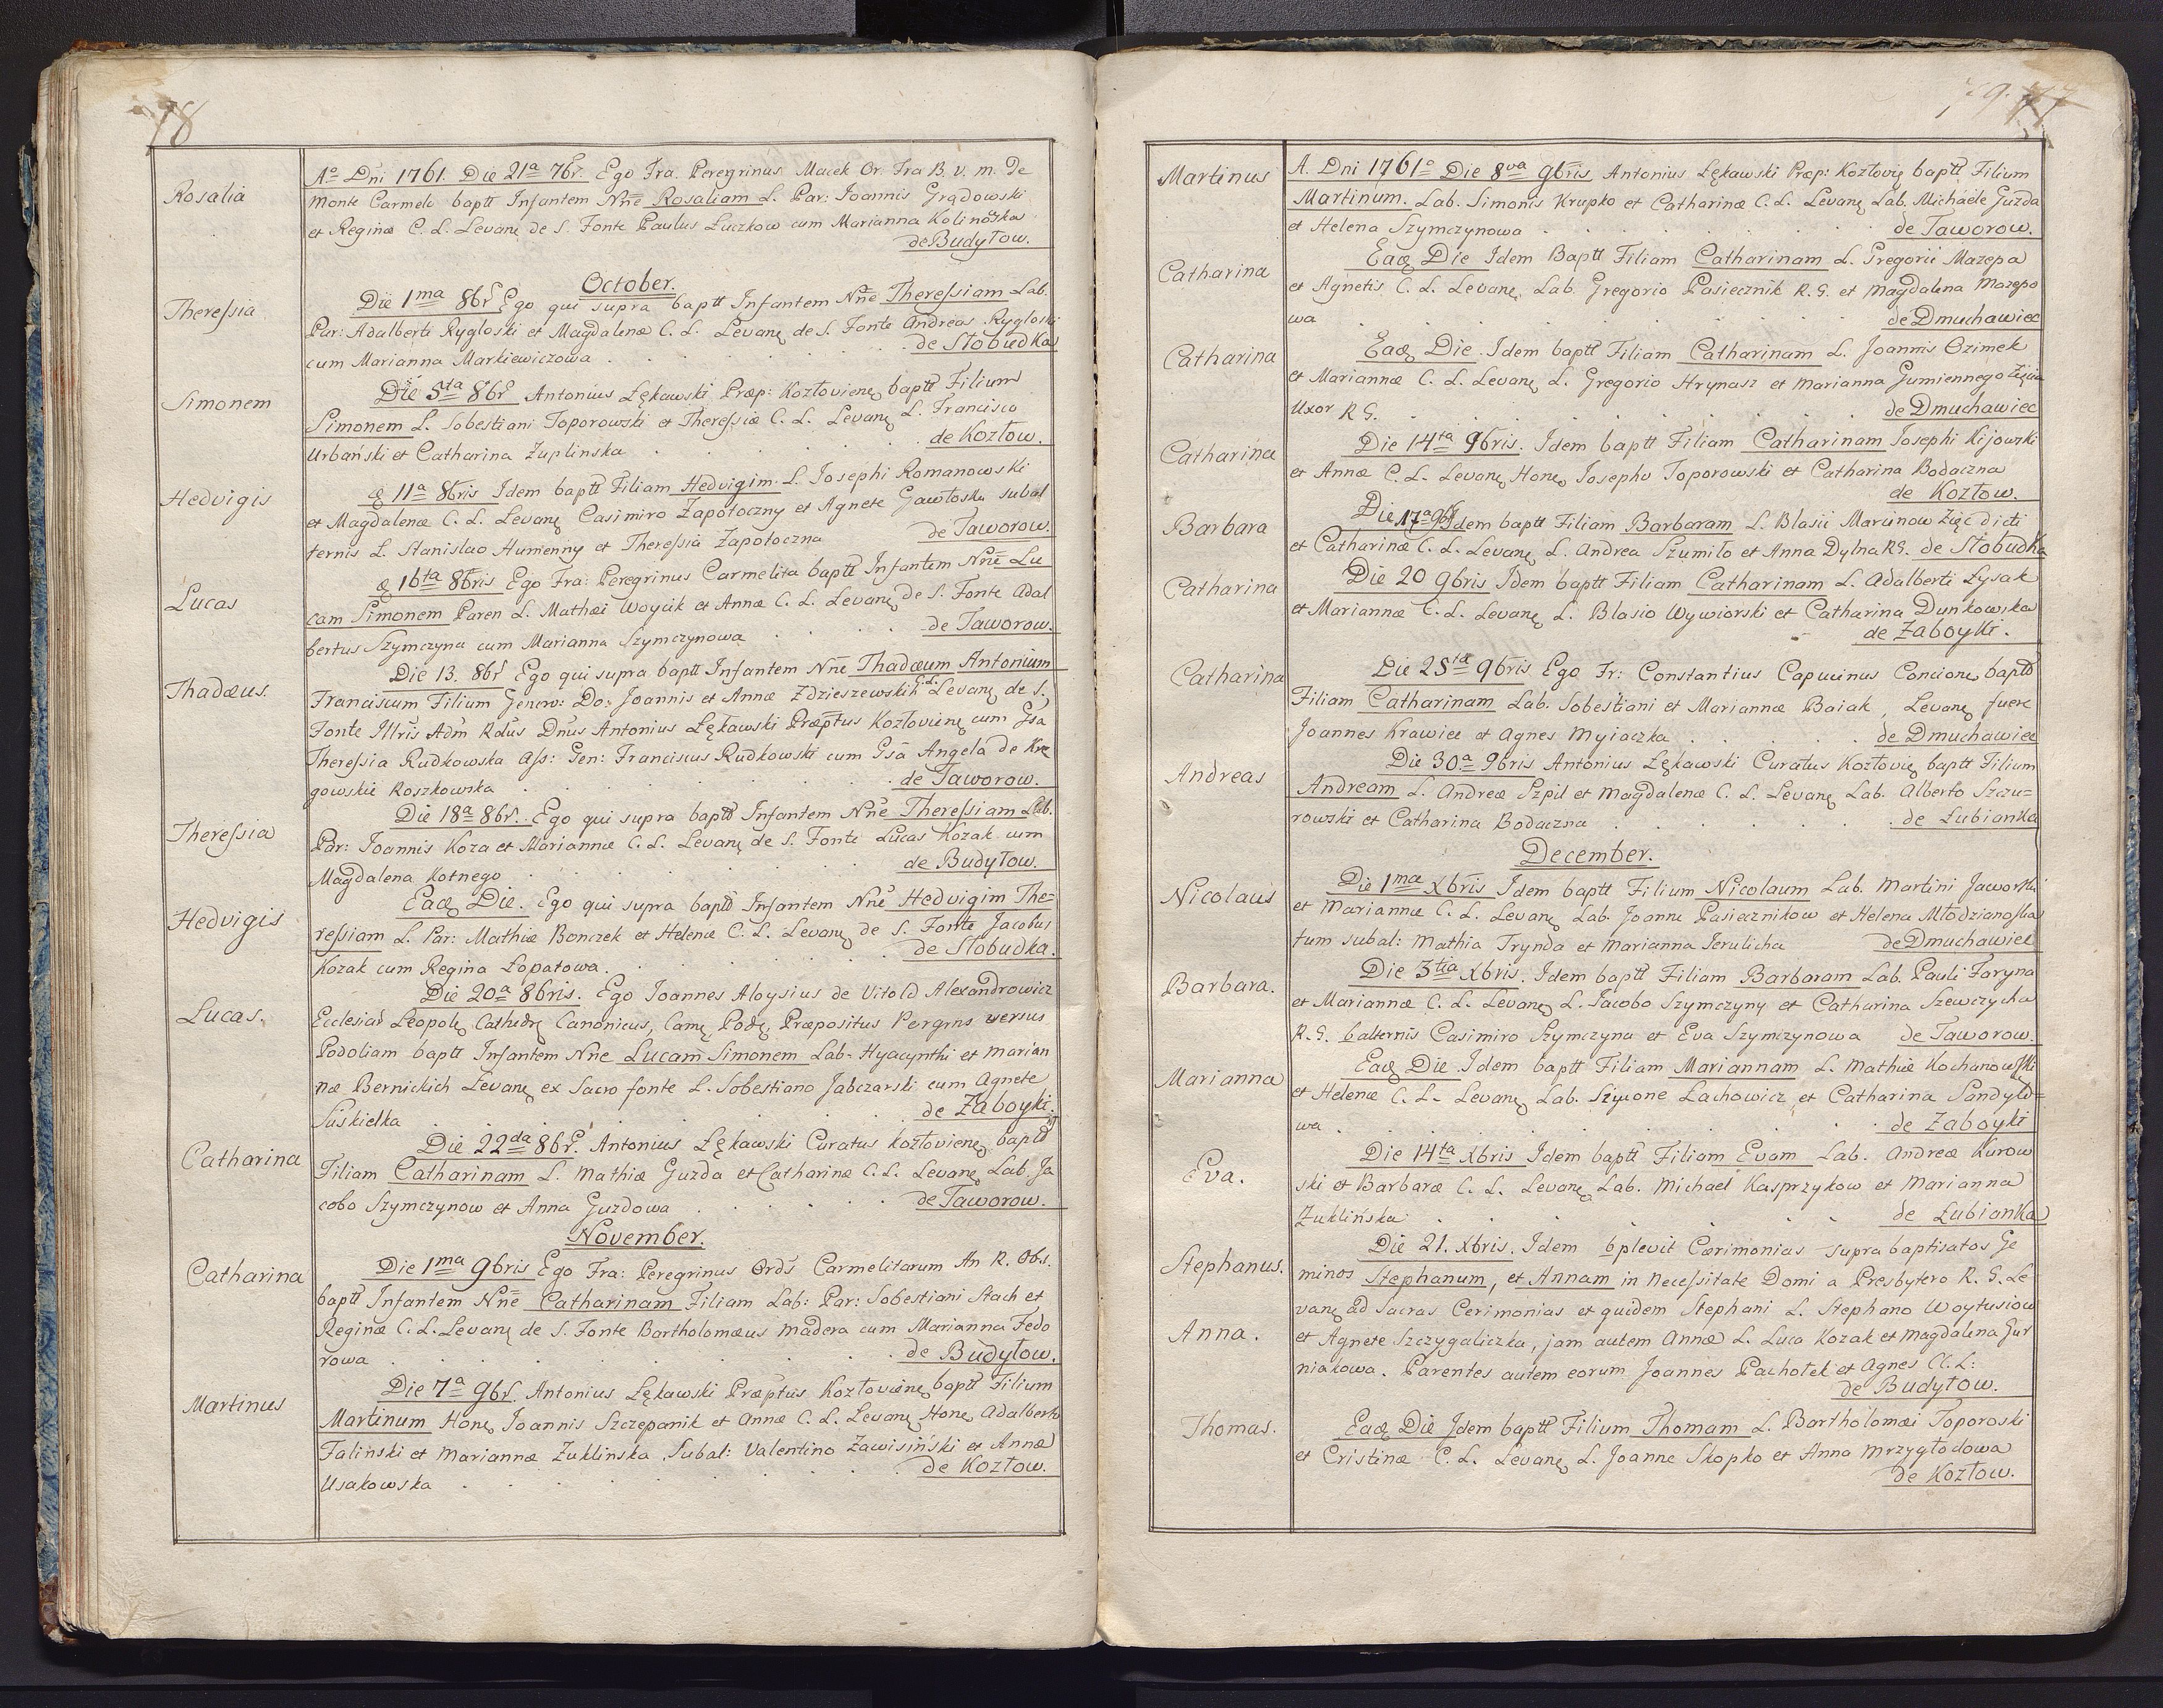 78
Rosalia
Aº Dni 1761. Die 21a 7br. Ego Fra. Peregrinus Macek Or. Fra B. v. m. De
Monte Carmelo baptt Infantem Nne Rosaliam L. Par: Joannis Grądowski
et Reginæ C. L. Levanę de S. Fonte Paulus Łuczkow cum Marianna Kalinoska
de Budyłow.
October.
Theressia
Die 1ma 8br Ego qui supra baptt Infantem Nne Theressiam Lab.
Par: Adalberti Rygloski et Magdalenæ C. L. Levanę de S. Fonte Andreas Rygloski
cum Marianna Markiewiczowa . . . . de Słobudka
Simonem
Die 5ta 8br Antonius Łękawski Præp: Kozłovienę baptt Filium
Simonem L. Sobestiani Toporowski et Theressiæ C. L. Levanę L. Francisco
Urbański et Catharina Zuplinska . . . de Kozłow.
Hedvigis
11a 8bris Idem baptt Filiam Hedvigim L. Josephi Romanowski
et Magdalenæ C. L. Levanę Casimiro Zapołoczny et Agnete Gawłoska subal
ternis L. Stanislao Humenny et Theressia Zapołoczna de Taworow.
Lucas
16ta 8bris Ego Fra: Peregrinus Carmelita baptt Infantem Nne Lu
cam Simonem Paren L. Mathæi Woycik et Annæ C. L. Levanę de S. Fonte Adal
bertus Szymczyna cum Marianna Szymczynowa . . . de Taworow.
Thadæus.
Die 13. 8br Ego qui supra baptt Infantem Nne Thadæum Antonium
Franciscum Filium Gener: Do: Joannis et Annæ Zdzieszewskih C. L. Levanę de S.
Fonte Illris Adm Rdus Dnus Antonius Łękawski Præptus Kozłovienę cum Gsa
Theressia Rudkowska Ass: Gen: Franciscus Rudkowski cum Gsa Angela de Krę
gowskie Roszkowska . . . . de Taworow.
Theressia
Die 18a 8br. Ego qui supra baptt Infantem Nne Theressiam Lab.
Par: Joannis Koza et Mariannæ C. L. Levanę de S. Fonte Lucas Kozak cum
Magdalena Kotnego . . . . de Budyłow.
Hedvigis
Eadę Die. Ego qui supra baptt Infantem Nne Hedvigim The=
ressiam L. Par: Mathiæ Bonczek et Helenæ C. L. Levanę de S. Fonte Jacobus
Kozak cum Regina Łopatowa . . . . de Słobudka.
Lucas.
Die 20a 8bris. Ego Joannes Aloysius de Vitold Alexandrowicz
Ecclesiar Leopolę Cathedrę Canonicus, Camę Podę, Præpositus Pergrns versus
Podoliam baptt Infantem Nne Lucam Simonem Lab. Hyacynthi et Marian
næ Bernickich Levanę ex Sacro fonte L. Sobestiano Jabczarski cum Agnete
Suskielka . . . . de Zaboyki.
Catharina
Die 22da 8br. Antonius Łękawski Curatus Kozłovienę baptt
Filiam Catharinam L. Mathiæ Guzda et Catharinæ C. L. Levanę Lab Ja
cobo Szymczynow et Anna Guzdowa . . . . de Taworow.
November.
Catharina
Die 1ma 9bris Ego Fra: Peregrinus Ords Carmelitarum An R. Obs.
baptt Infantem Nne Catharinam Filiam Lab: Par: Sobestiani Stach et
Reginæ C. L. Levanę de S. Fonte Bartholomæus Madera cum Marianna Fedo
rowa . . . . de Budyłow.
Martinus
Die 7a 9br. Antonius Łękawski Præptus Kozłovienę baptt Filium
Martinum Honę Joannis Szczepanik et Annæ C. L. Levanę Honę Adalberto
Falinski et Mariannæ Zuklinska, Subal: Valentino Zawisiński et Annæ
Usakowska . . . . de Kozłow.
79. 77
Martinus
A. Dni 1761º Die 8va 9bris Antonius Łękawski Præp: Kozłovię baptt Filium
Martinum. Lab. Simonis Krupko et Catharinæ C. L. Levanę Lab. Michaele Guzda
et Helena Szymczynowa . . . . de Taworow.
Catharina
Eadę Die Idem Baptt Filiam Catharinam L. Gregorii Mazepa
et Agnetis C. L. Levanę Lab. Gregorio Pasiecznik R. G. et Magdalena Mazepo
wa . . . . de Dmuchawiec
Catharina
Eadę Die. Idem baptt Filiam Catharinam L. Joannis Ozimek
et Mariannæ C. L. Levanę L. Gregorio Hrynasz et Marianna Gumiennego Zięcia
Uxor R G. . . . . de Dmuchawiec
Catharina
Die 14ta 9bris. Idem baptt Filiam Catharinam Josephi Kijowski
et Annæ C. L. Levanę Honę Josepho Toporowski et Catharina Bodaczna
de Kozłow.
Barbara
Die 17a 9br Idem baptt Filiam Barbaram L. Blasii Marcinow Zięć dicti
et Catharinæ C. L. Levanę L. Andrea Szumiło et Anna Dylna RG. de Słobudka
Catharina
Die 20 9bris Idem baptt Filiam Catharinam L. Adalberti Łysak
et Mariannæ C. L. Levanę L. Blasio Wywiorski et Catharina Dunkowska
de Zaboyki.
Catharina
Die 25ta 9bris Ego Fr: Constantius Capucinus Concionę baptt
Filiam Catharinam Lab. Sobestiani et Mariannæ Baiak, Levanę fuere
Joannes Krawiec et Agnes Myiaczka . . . . de Dmuchawiec
Andreas
Die 30a 9bris Antonius Łękawski Curatus Kozłovię baptt Filium
Andream L. Andreæ Szpil et Magdalenæ C. L. Levanę Lab. Alberto Szczu=
rowski et Catharina Bodaczna . . . . de Łubianka
December.
Nicolaus
Die 1ma Xbris Idem baptt Filium Nicolaum Lab. Martini Jaworski
et Mariannæ C. L. Levanę Lab. Joanne Pasiecznikow et Helena Młodzianoska
tum subal: Mathia Trynda et Marianna Jerulicha de Dmuchawiec
Barbara.
Die 3tia Xbris. Idem baptt Filiam Barbaram Lab. Pauli Faryna
et Mariannæ C. L. Levanę L. Jacobo Szymczyny et Catharina Szewczycha
R. G. balternis Casimiro Szymczyna et Eva Szymczynowa de Taworow.
Marianna
Eadę Die Idem baptt Filiam Mariannam L. Mathiæ Kochanowski
et Helenæ C. L. Levanę Lab. Szymone Lachowicz et Catharina Sandyło=
wa . . . . de Zaboyki
Eva.
Die 14ta Xbris Idem baptt Filiam Evam Lab. Andreæ Kurow
ski et Barbaræ C. L. Levanę Lab. Michael Kasprzykow et Marianna
Zuklińska . . . . de Łubianka
Stephanus.
Die 21. Xbris. Idem plevit Cærimonias supra baptisatos Ge
minos Stephanum, et Annam in necessitate Domi a Presbytero R. G. Le-
vanę ad sacras Cerimonias et quidem Stephani L. Stephano Woytusiow
Anna.
et Agnete Szczygaliczka, jam autem Annæ L. Luca Kozak et Magdalena Gur
niakowa. Parentes autem eorum Joannes Pachołek et Agnes CC. L:
de Budyłow.
Thomas.
Eadę Die Idem baptt Filium Thomam L. Bartholomæi Toporoski
et Cristinæ C. L. Levanę L. Joanne Skopko et Anna Mrzygłodowa
de Kozłow.